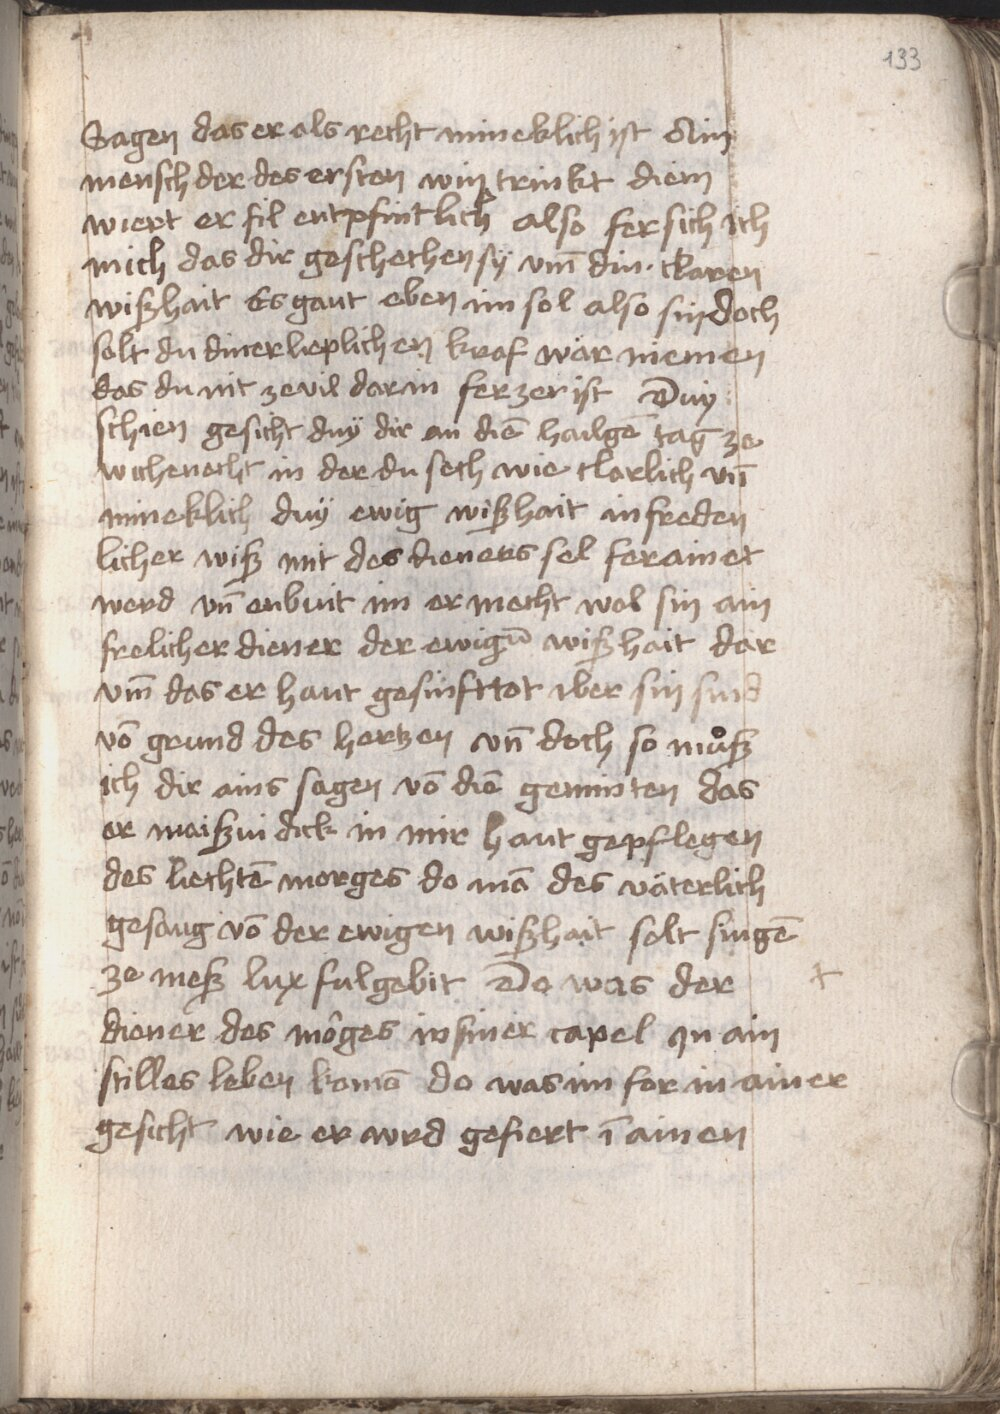 133
Sagen das er als recht mineklich ist Ain
mensch der des ersten win trinkt diem
wiert er fil entpfintlich also fersich ich
mich das dir geschechen sÿ vm̄ din claren
wißhait Es gaut eben im sol also sin doch
solt du diner lieplichen kraf wär niemen
das du nit ze vil dar in ferzer ist Duÿ
schien gesicht duÿ dir an diē hailgē tag ze
wichenecht in der du sech wie clarlich vn̄
mineklich duÿ ewig wißhait in freden
licher wiß mit des dieners sel ferainet
werd vn̄ enbuit im er mecht wol sin ain
frelicher diener der ewigū wißhait dar
vm̄ das er haut gesinfttot iber sin sind
vō grund des hertzen vn̄ doch so můß
ich dir ains sagen vō diē geminten das
er maiß dick in mir haut gepflegen
des liechtē morges do mā des väterlich
gesang vō der ewigen wißhait solt singē
ze meß lux fulgebit Do was der
diener des môges in siner capel in ain
stilles leben komē do was im for in ainer
gesicht wie er wrd gefiert ī ainen